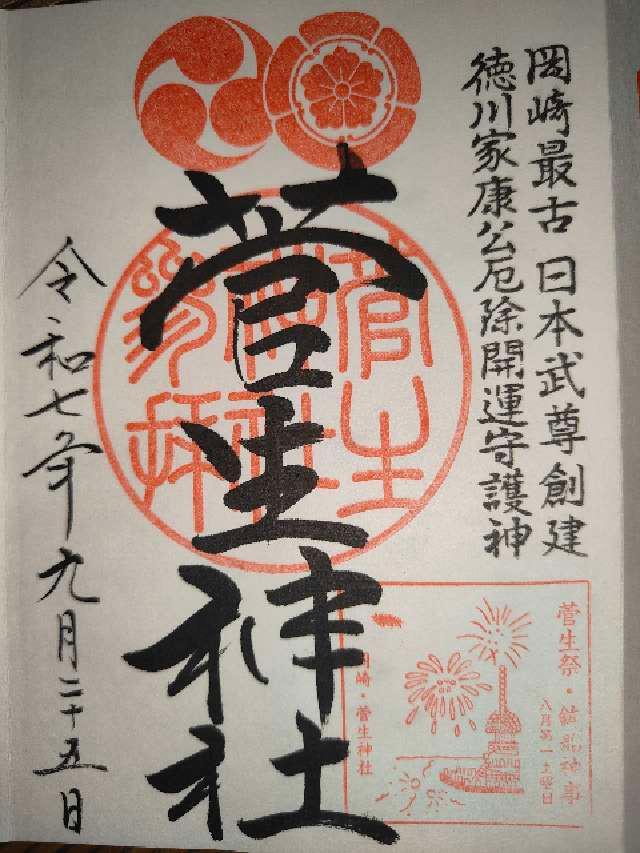 岡崎最古 日本武尊創建
徳川家康公厄除開運守護神
菅生神社
菅生神社参拝
令和七年九月二十五日
菅生祭・鉾船神事
八月第一土曜日
岡崎・菅生神社